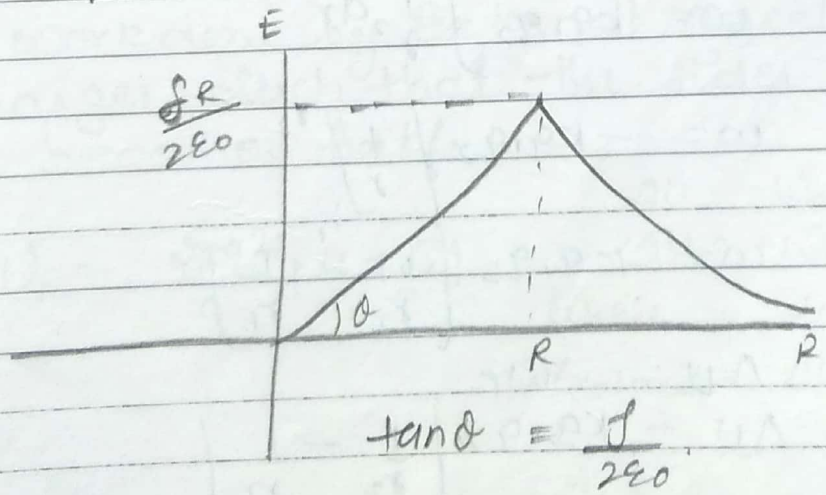 E
ρR/2ε0
θ
R R
tanθ = ρ/2ε0.